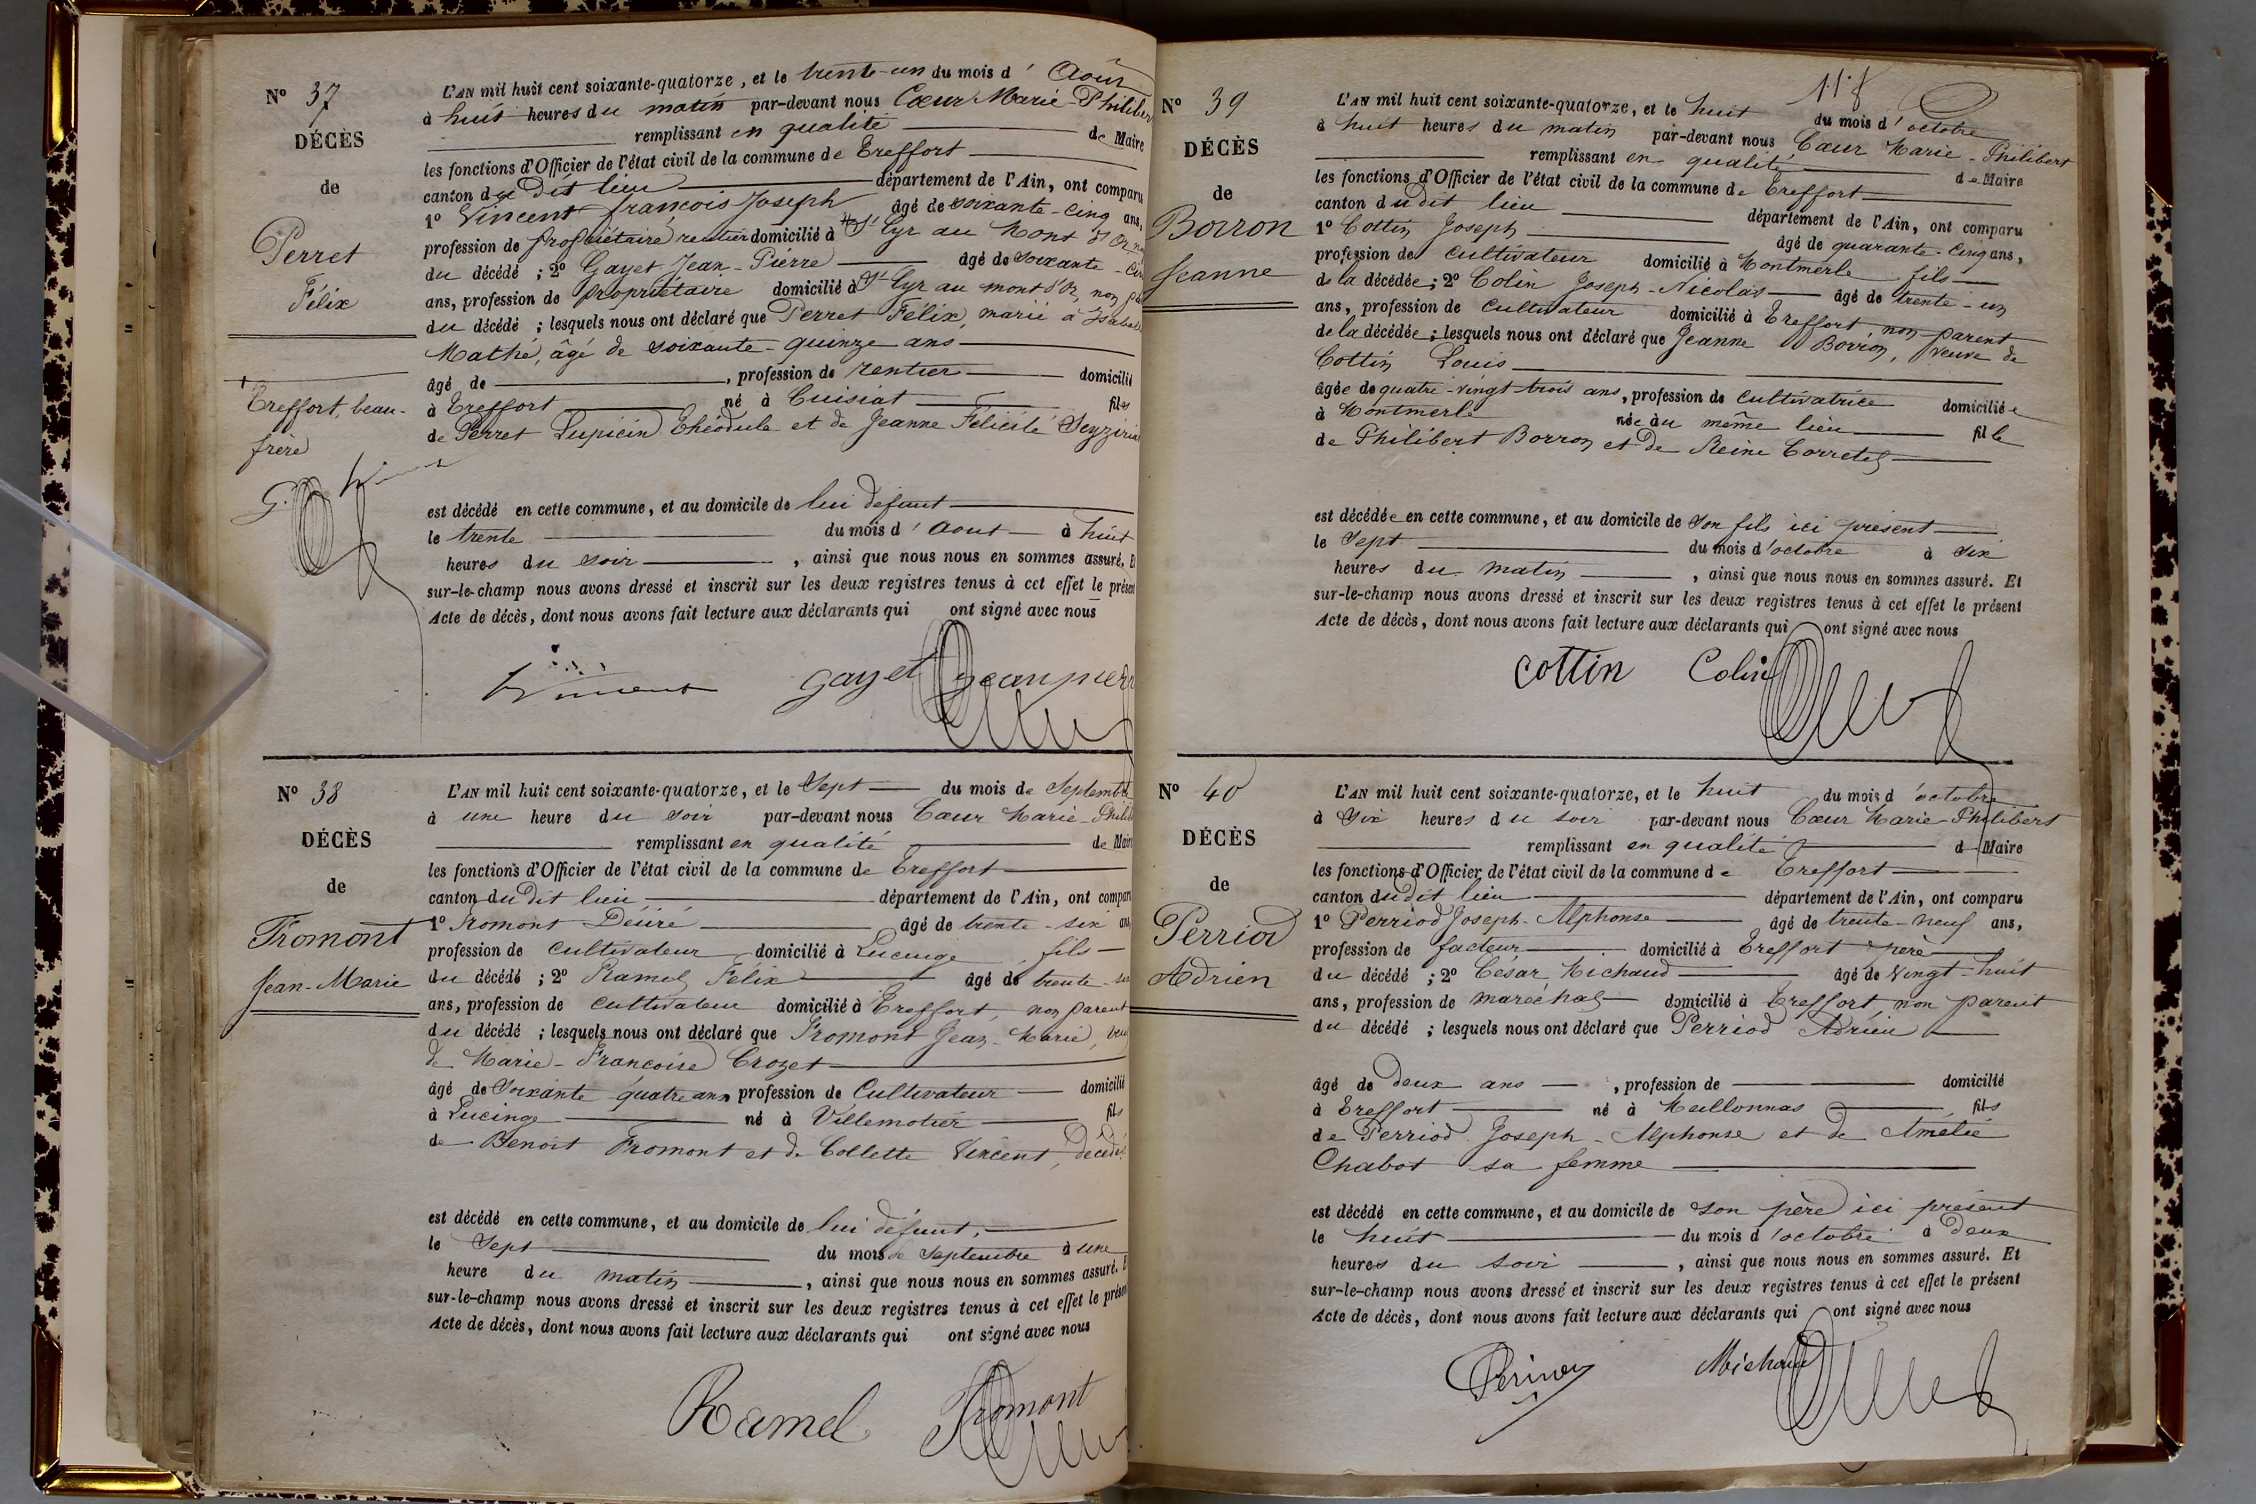 Nº 37
DÉCÈS
de
Perret
Félix
Treffort, beau-
frère
L'AN mil huit cent soixante-quatorze, et le trente-un du mois d' Août
à huit heures du matin par-devant nous Cœur Marie-Philiber
remplissant en qualité de Maire
les fonctions d'Officier de l'état civil de la commune de Treffort
canton du dit lieu département de l'Ain, ont comparu
1º Vincent françois Joseph âgé de soixante-cinq ans,
profession de propriétaire rentier domicilié à St Cyr au Mont d'Or
du décédé ; 2º Gayet Jean-Pierre âgé de soixante-cin
ans, profession de propriétaire domicilié à St Cyr au mont d'Or, non pa
du décédé ; lesquels nous ont déclaré que Perret Félix, marié à Isabel
Mathé, âgé de soixante-quinze ans
âgé de , profession de rentier domicilié
à Treffort né à Cuisiat fils
de Perret Lupicin Théodule et de Jeanne Félicité Seyziria
est décédé en cette commune, et au domicile de lui défunt
le trente du mois d' Aout à huit
heures du soir , ainsi que nous nous en sommes assuré. E
sur-le-champ nous avons dressé et inscrit sur les deux registres tenus à cet effet le présent
Acte de décès, dont nous avons fait lecture aux déclarants qui ont signé avec nous
Vincent gayet jean pierr
Nº 38
DÉCÈS
de
Fromont
Jean-Marie
L'AN mil huit cent soixante-quatorze, et le Sept du mois de Septembr
à une heure du soir par-devant nous Cœur Marie-Philib
remplissant en qualité de Mair
les fonctions d'Officier de l'état civil de la commune de Treffort
canton du dit lieu département de l'Ain, ont compar
1º Fromont Désiré âgé de trente-six ans
profession de cultivateur domicilié à Lucinge, fils
du décédé ; 2º Ramel Félix âgé de trente
ans, profession de cultivateur domicilié à Treffort, non parent
du décédé ; lesquels nous ont déclaré que Fromont Jean-Marie, veu
de Marie-Françoise Crozet
âgé de soixante quatre ans profession de Cultivateur domicilié
à Lucinge né à Villemotier fils
de Benoit Fromont et de Collette Vincent, décédés
est décédé en cette commune, et au domicile de lui défunt,
le Sept du mois de Septembre à une
heure du matin , ainsi que nous nous en sommes assuré. E
sur-le-champ nous avons dressé et inscrit sur les deux registres tenus à cet effet le prése
Acte de décès, dont nous avons fait lecture aux déclarants qui ont signé avec nous
Ramel Fromont
118
Nº 39
DÉCÈS
de
Borron
Jeanne
L'AN mil huit cent soixante-quatorze, et le huit du mois d' octobre
à huit heures du matin par-devant nous Cœur Marie-Philibert
remplissant en qualité de Maire
les fonctions d'Officier de l'état civil de la commune de Treffort
canton du dit lieu département de l'Ain, ont comparu
1º Cottin Joseph âgé de quarante-cinq ans,
profession de cultivateur domicilié à Montmerle fils
de la décédée ; 2º Colin Joseph-Nicolas âgé de trente-un
ans, profession de cultivateur domicilié à Treffort, non parent
de la décédée ; lesquels nous ont déclaré que Jeanne Borron, veuve de
Cottin Louis
âgée de quatre-vingt trois ans, profession de cultivatrice domiciliée
à Montmerle née au même lieu fille
de Philibert Borron et de Reine Corretel
est décédée en cette commune, et au domicile de son fils ici présent
le Sept du mois d'octobre à six
heures du matin , ainsi que nous nous en sommes assuré. Et
sur-le-champ nous avons dressé et inscrit sur les deux registres tenus à cet effet le présent
Acte de décès, dont nous avons fait lecture aux déclarants qui ont signé avec nous
cottin Colin
Nº 40
DÉCÈS
de
Perriod
Adrien
L'AN mil huit cent soixante-quatorze, et le huit du mois d'octobre
à Six heures du soir par-devant nous Cœur Marie-Philibert
remplissant en qualité d Maire
les fonctions d'Officier de l'état civil de la commune de Treffort
canton du dit lieu département de l'Ain, ont comparu
1º Perriod Joseph-Alphonse âgé de trente-neuf ans,
profession de facteur domicilié à Treffort père
du décédé ; 2º César Michaud âgé de vingt-huit
ans, profession de maréchal domicilié à Treffort, non parent
du décédé ; lesquels nous ont déclaré que Perriod Adrien
âgé de deux ans , profession de domicilié
à Treffort né à Meillonnas fils
de Perriod Joseph-Alphonse et de Amélie
Chabot sa femme
est décédé en cette commune, et au domicile de son père ici présent
le huit du mois d'octobre à deux
heures du soir , ainsi que nous nous en sommes assuré. Et
sur-le-champ nous avons dressé et inscrit sur les deux registres tenus à cet effet le présent
Acte de décès, dont nous avons fait lecture aux déclarants qui ont signé avec nous
Michaud